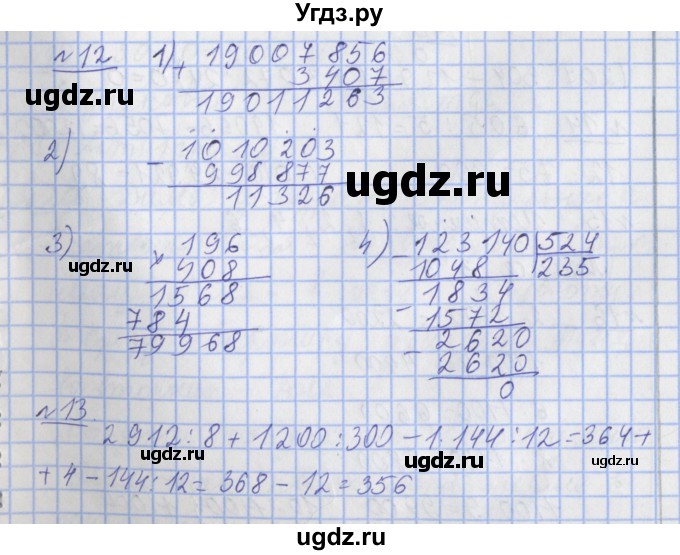 Угдз.ру
№12 1) + 19007856
3407
19011263
ugdz.ru
ugdz.ru
2) - 1010203
998877
11326
ugdz.ru
3) × 196
408
1568
784
79968
ugdz.ru
4) - 123140 | 524
1048 235
- 1834
1572
- 2620
2620
0
ugdz.ru
№13
2912:8+1200:300-1·144:12=364+
+4-144:12=368-12=356
ugdz.ru
ugdz.ru
ugdz.ru